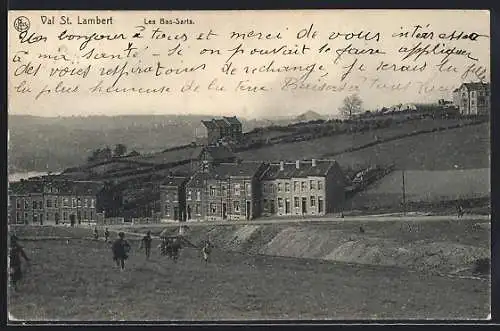 Val St. Lambert Les Bas-Sarts.
Un bonjour à tous et merci de vous intéresser
à ma santé - si on pouvait se faire appliquer
des voies respiratoires de rechange, je serais la fille
la plus heureuse de la terre Baisers à tous